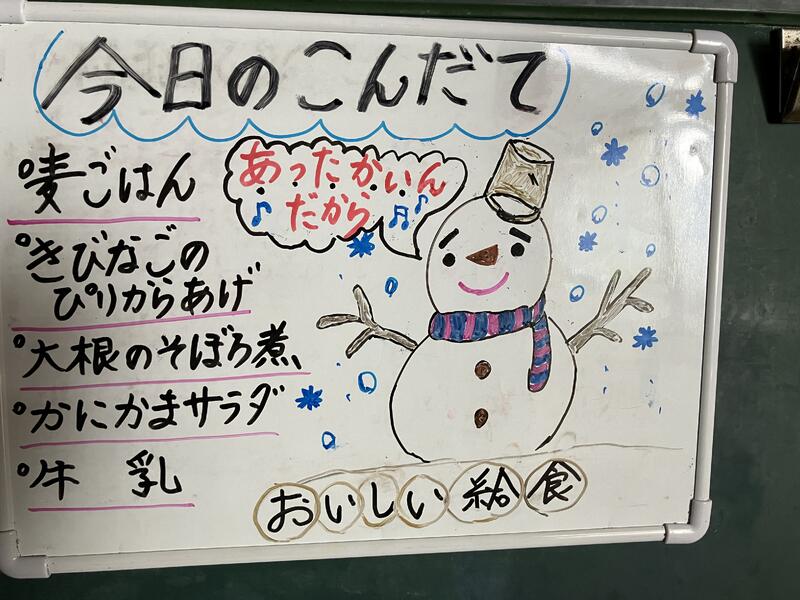 今日のこんだて
麦ごはん
きびなごの
ぴりからあげ
大根のそぼろ煮
かにかまサラダ
牛 乳
あったかいん
だから♪♬♪
おいしい給食